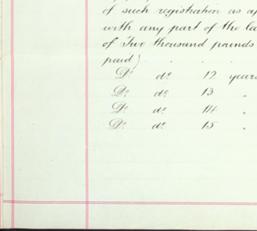 of such registration as ap
with any part of the la
of Two thousand pounds
paid)
Do do 12 years
Do do 13 "
Do do 14 "
Do do 15 "